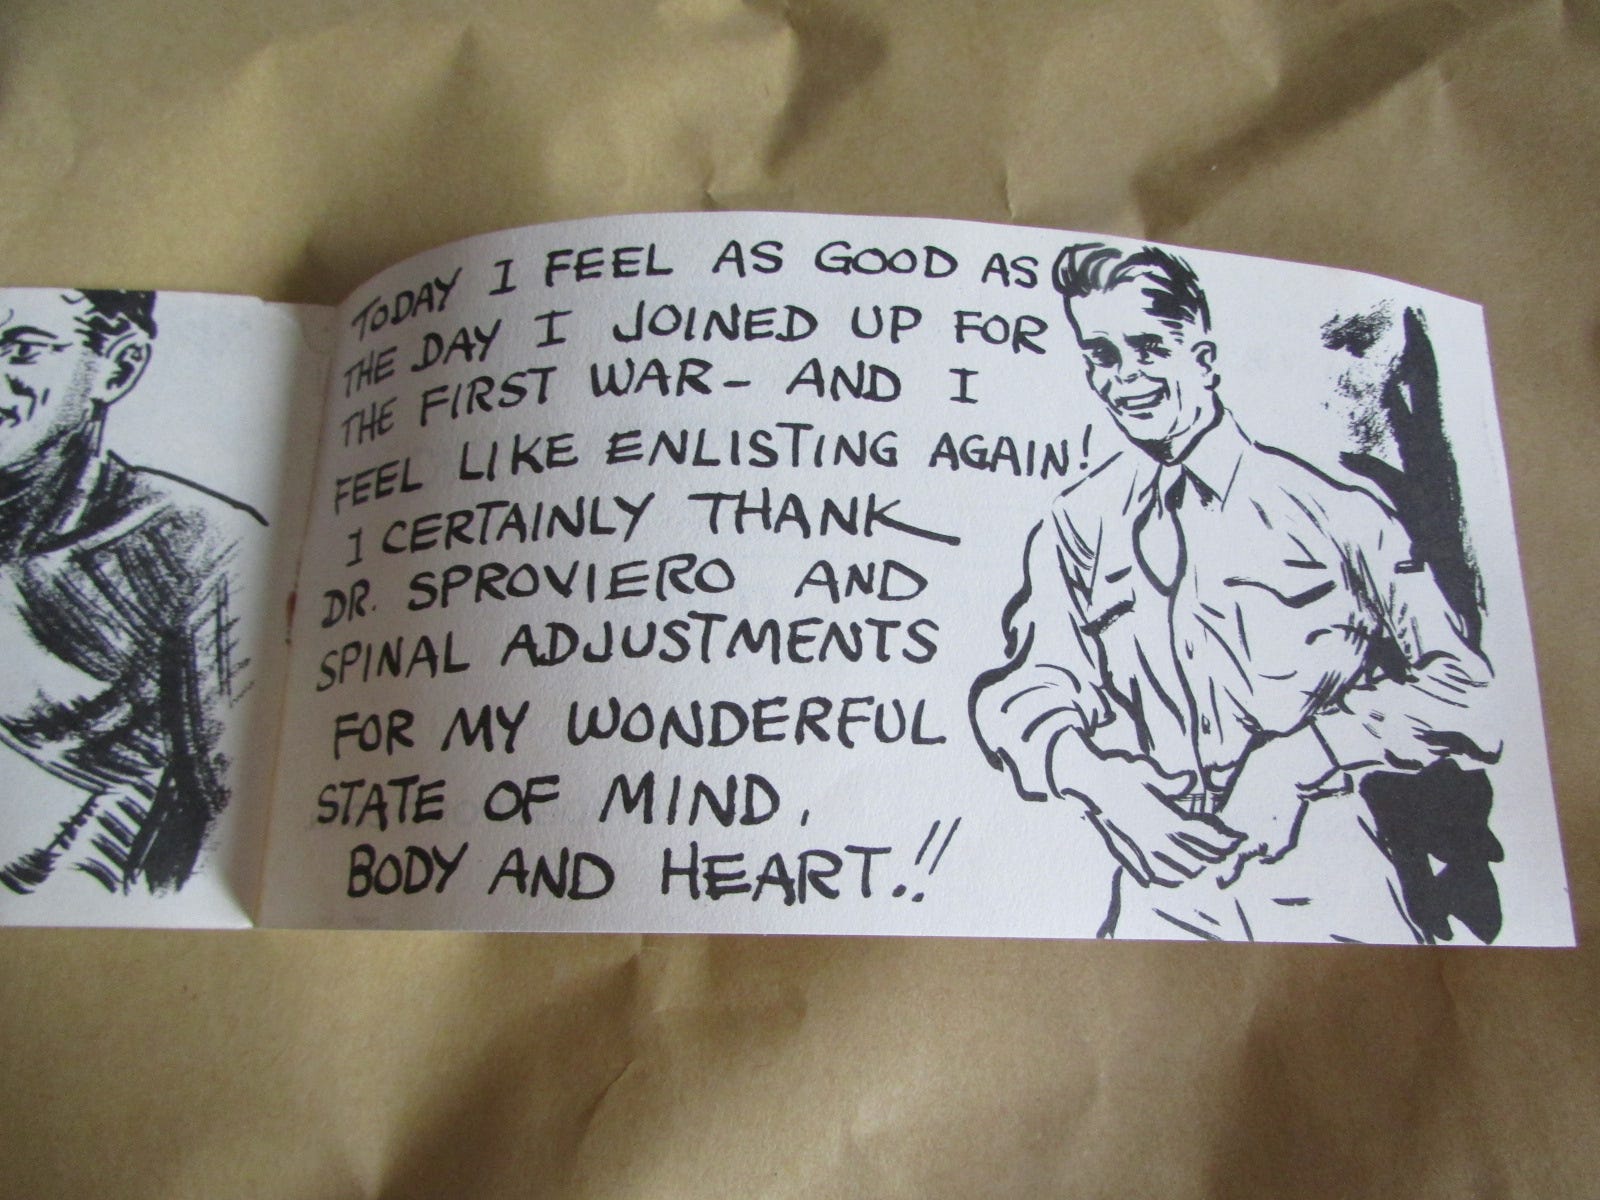 TODAY I FEEL AS GOOD AS
THE DAY I JOINED UP FOR
THE FIRST WAR - AND I
FEEL LIKE ENLISTING AGAIN!
I CERTAINLY THANK
DR. SPROVIERO AND
SPINAL ADJUSTMENTS
FOR MY WONDERFUL
STATE OF MIND,
BODY AND HEART.!!